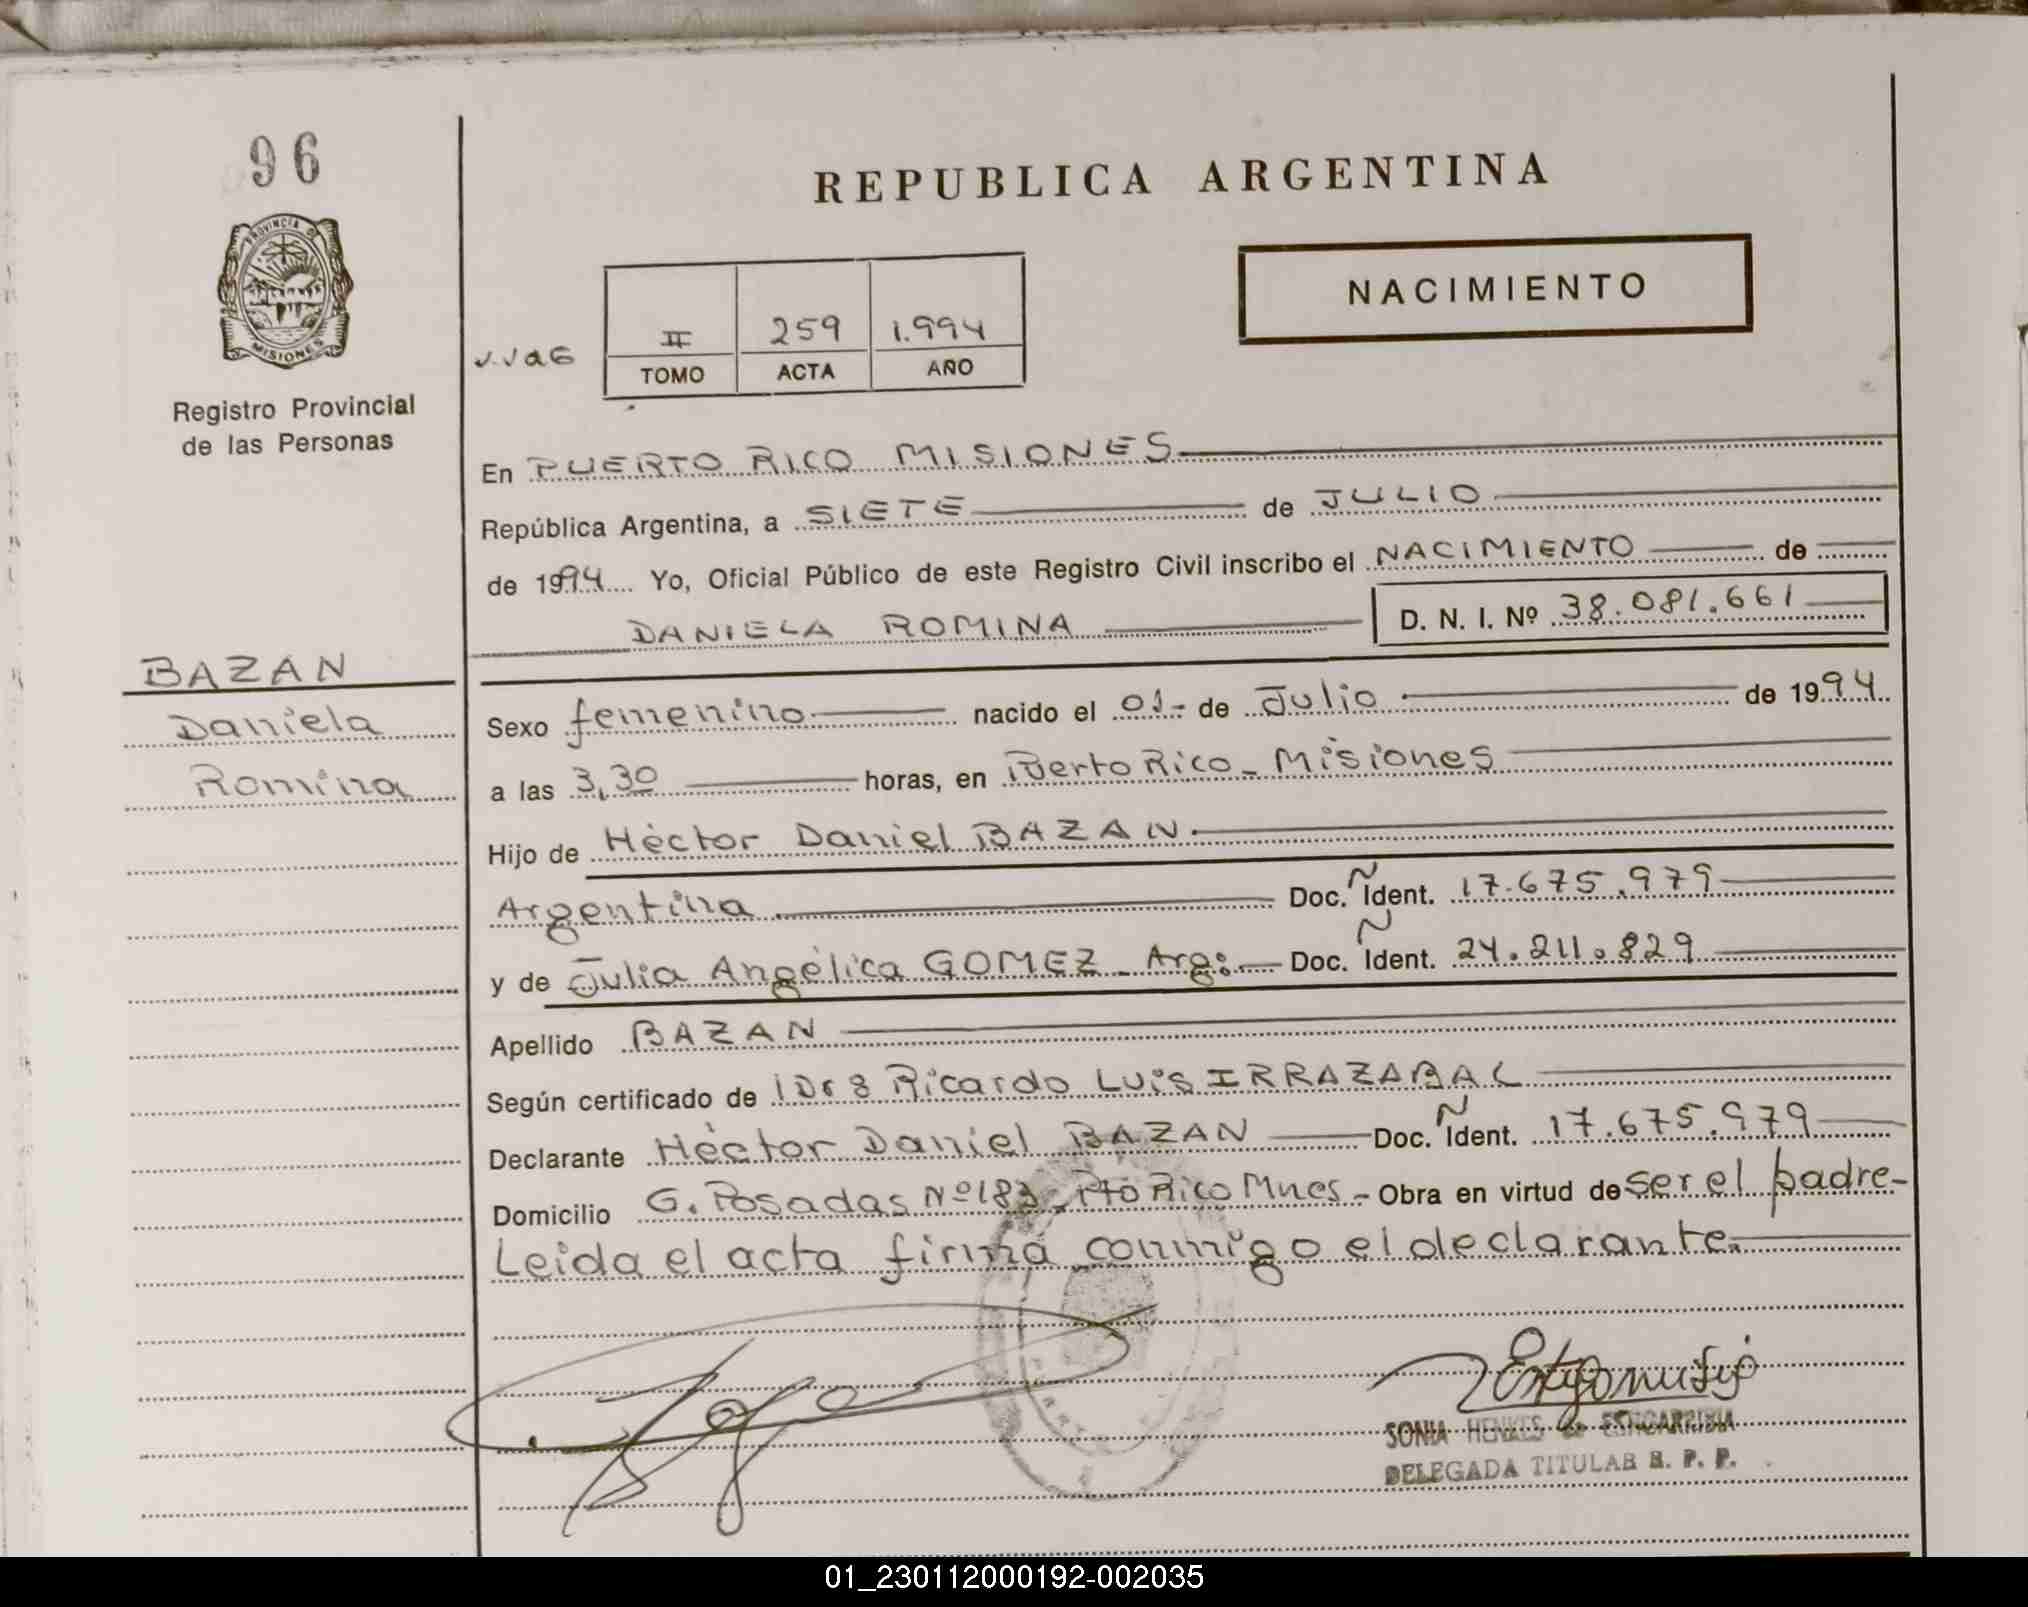 96
REPUBLICA ARGENTINA
PROVINCIA DE
MISIONES
Registro Provincial
de las Personas
NACIMIENTO
II 259 1.994
TOMO ACTA AÑO
En PUERTO RICO MISIONES
República Argentina, a SIETE de JULIO
de 1994 Yo, Oficial Público de este Registro Civil inscribo el NACIMIENTO de
DANIELA ROMINA D. N. I. Nº 38.081.661
BAZAN
Daniela
Romina
Sexo femenino nacido el 01- de Julio de 1994
a las 3,30 horas, en Puerto Rico - Misiones
Hijo de Héctor Daniel BAZAN
Argentina Doc. Ñ Ident. 17.675.979
y de Julia Angélica GOMEZ - Arg: Doc. Ñ Ident. 24.211.829
Apellido BAZAN
Según certificado de Ricardo Luis IRRAZABAL
Declarante Héctor Daniel BAZAN Doc. Ñ Ident. 17.675.979
Domicilio G. Posadas Nº 183 - Pto Rico Mnes - Obra en virtud de ser el padre-
Leida el acta firma conmigo el declarante.
SONIA HENKES de
DELEGADA TITULAR R. P. P.
01_230112000192-002035